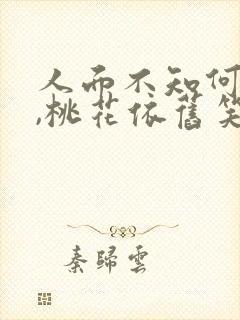 人而不知何
,桃花依舊笑
秦歸雲